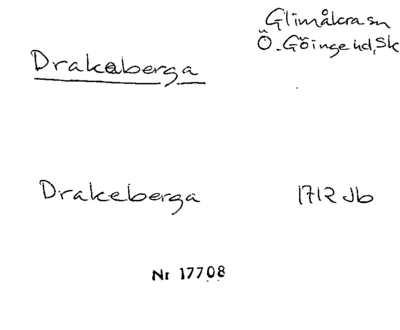 Glimåkra sn
Drakaberga Ö. Göinge hd, Sk
Drakeberga 1712 Jb
Nr 17708